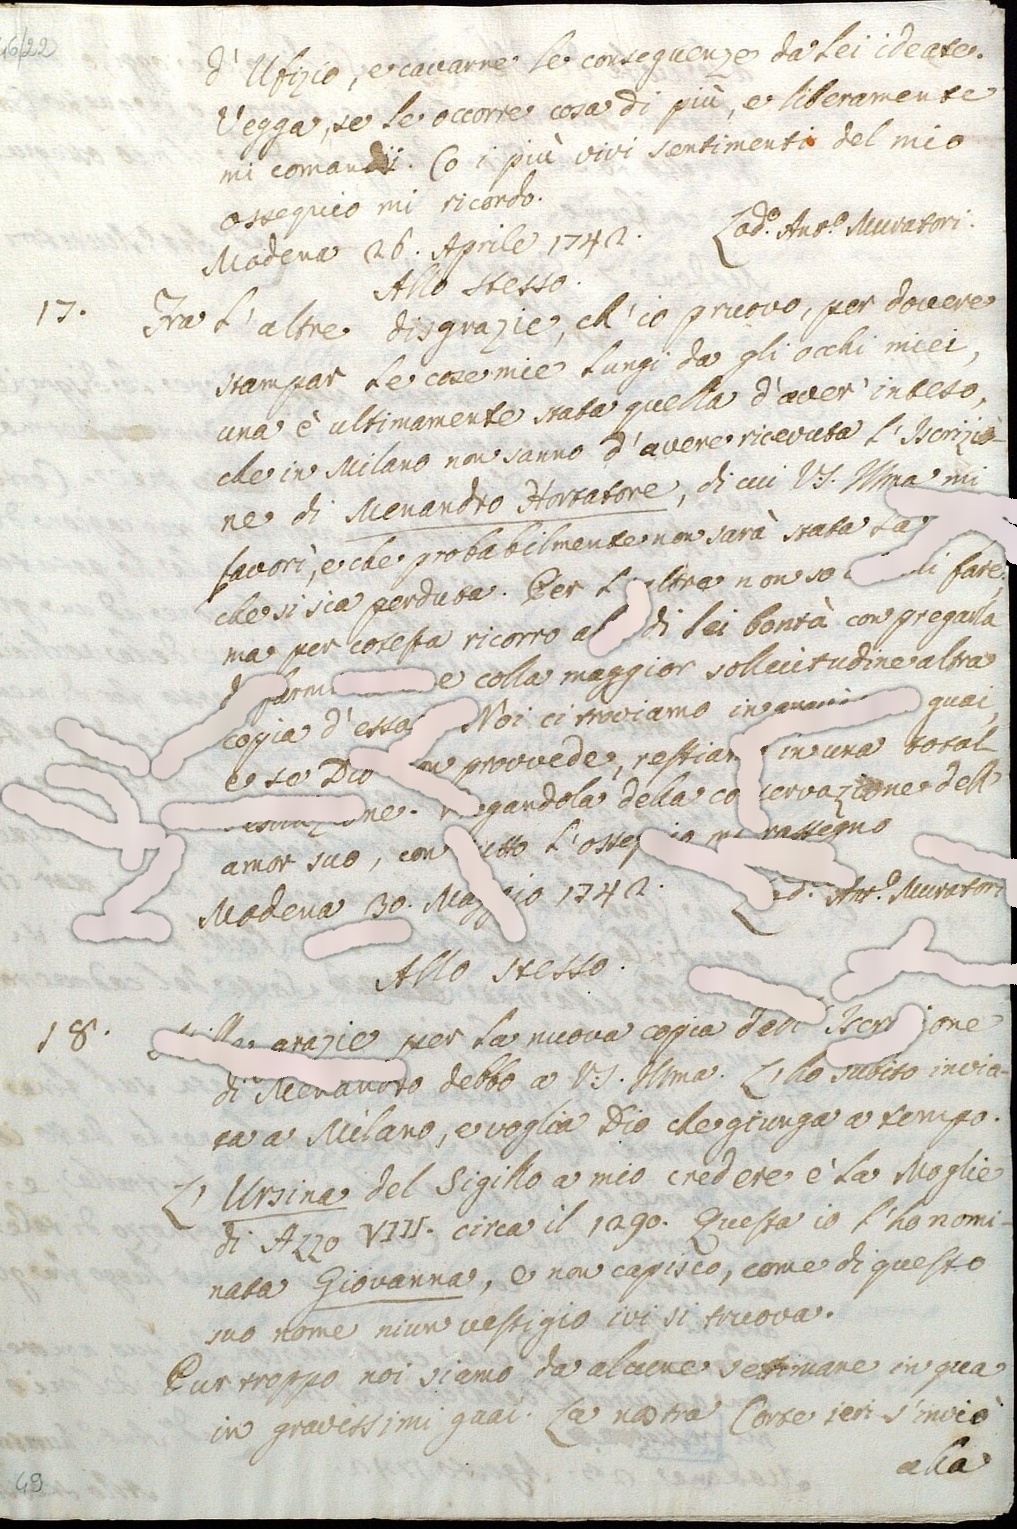 16/22
d'Ufizio, e cavarne le conseguenze da Lei ideate.
Vegga, se le occorre cosa di più, e liberamente
mi comandi. Co i più vivi sentimenti del mio
ossequio mi ricordo.
Modena 26. Aprile 1742. Lod.º Ant.º Muratori.
Allo stesso.
17. Fra l'altre disgrazie, ch'io pruovo, per dovere
stampar le cose mie lungi da gli occhi miei,
una è ultimamente stata quella d'aver' inteso,
che in Milano non sanno d'avere ricevuta l'Iscrizio-
ne di Menandro Hortatore, di cui VS. Illma mi
favorì, e che probabilmente non sarà stata la
che si sia perduta. Per l'altra non so fare,
ma per cotesta ricorro al di Lei bontà con pregarla
colla maggior sollecitudine altra
copia d'essa Noi ci troviamo in guai,
e se Dio non provvede, restiam in una total
Pregandola della conservazione dell'
amor suo, con tutto l'ossequio mi rassegno
Modena 30. Maggio 1742. Lod. Ant.º Muratori
Allo stesso.
18. Mille grazie per la nuova copia dell' Iscrizione
di Menandro debbo a VS. Illma. L'ho subito invia-
ta a Milano, e voglia Dio che giunga a tempo.
L'Ursina del Sigillo a mio credere è la Moglie
di Azzo VIII. circa il 1290. Questa io l'ho nomi-
nata Giovanna, e non capisco, come di questo
suo nome niun vestigio ivi si truova.
Pur troppo noi siamo da alcune settimane in qua
in gravissimi guai. La nostra Corte ieri s'inviò
alla
49